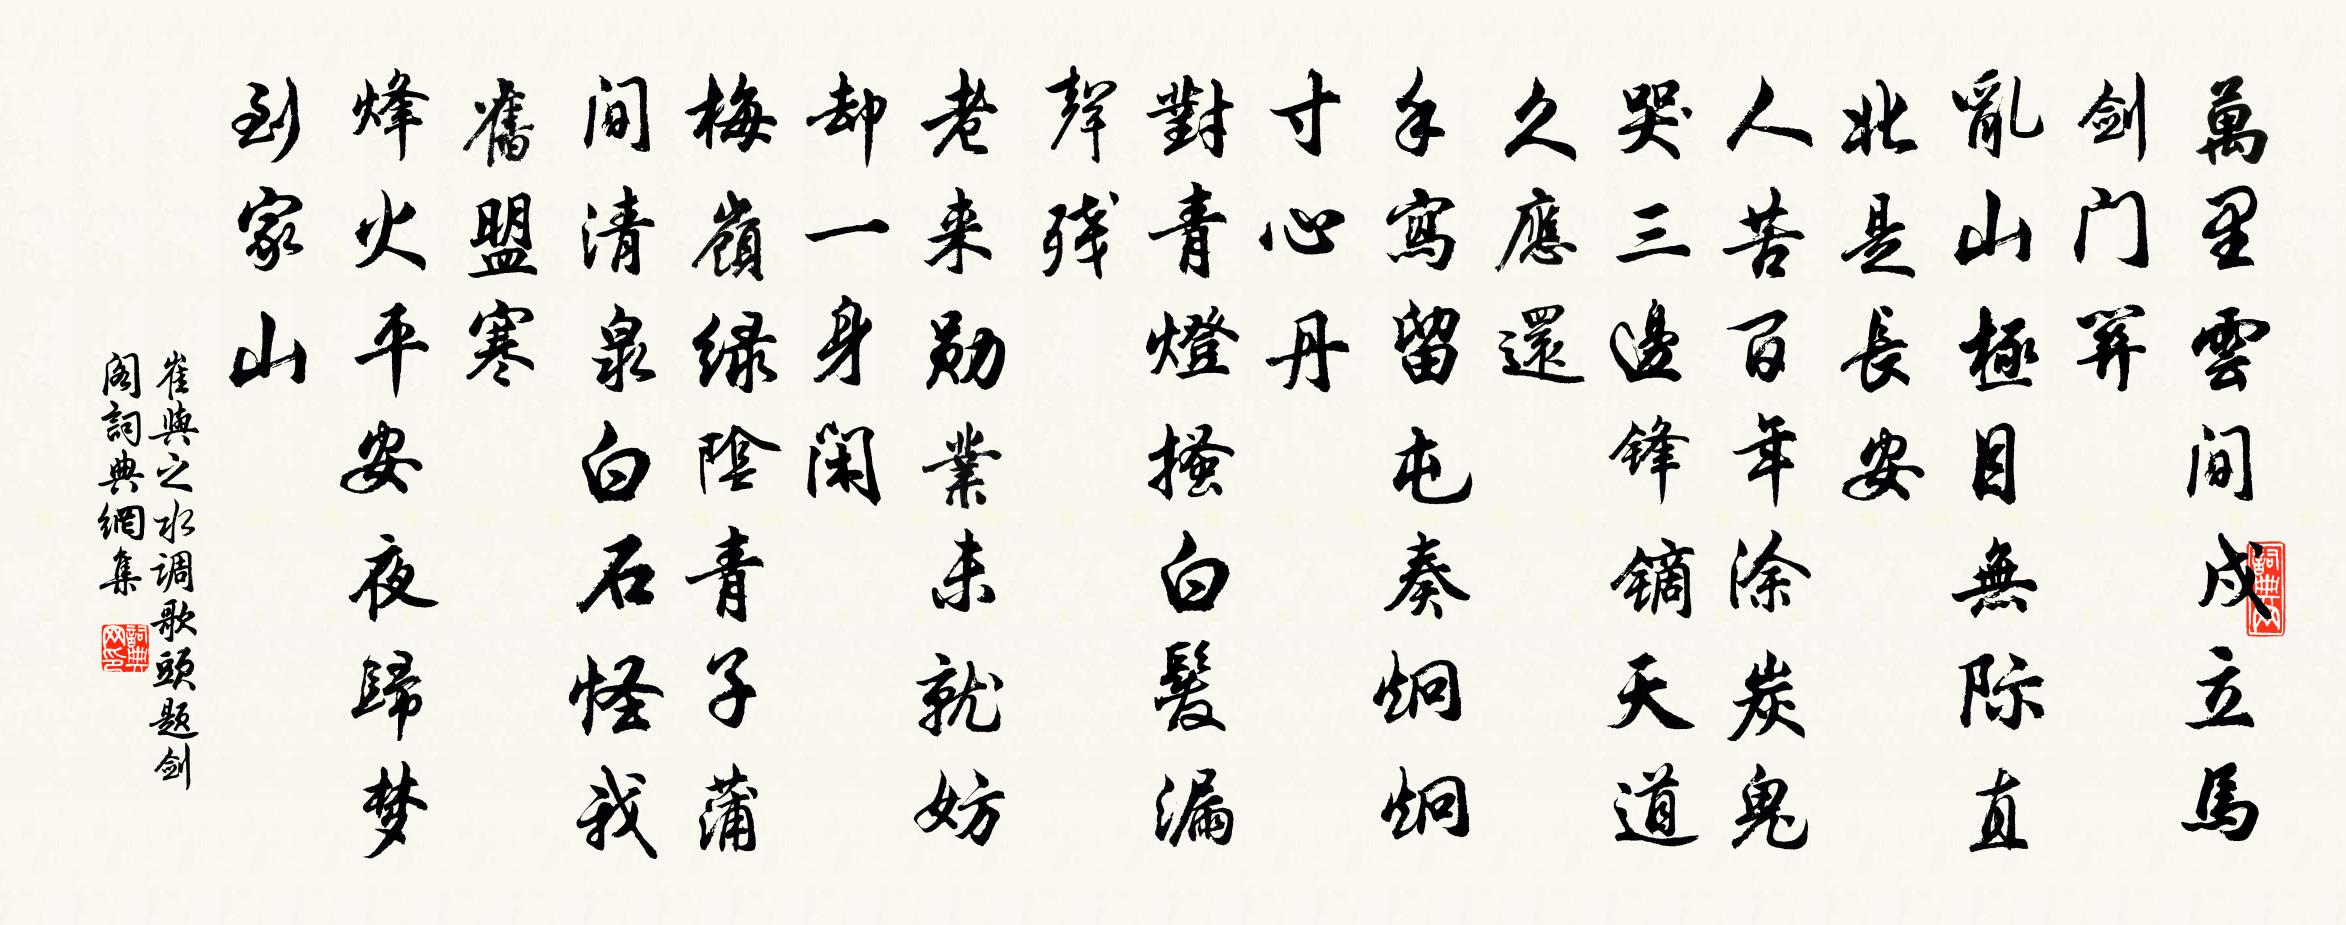 萬里雲间戍立馬
剑门关
亂山極目無际直
北是長安
人苦百年涂炭鬼
哭三邊锋镝天道
久應還
手寫留屯奏炯炯
寸心丹
對青燈搔白髮漏
聲残
老来勋業未就妨
却一身闲
梅嶺绿陰青子蒲
间清泉白石怪我
舊盟寒
烽火平安夜歸梦
到家山
崔與之水调歌頭题剑
阁詞典網集
詞典网
詞典网印